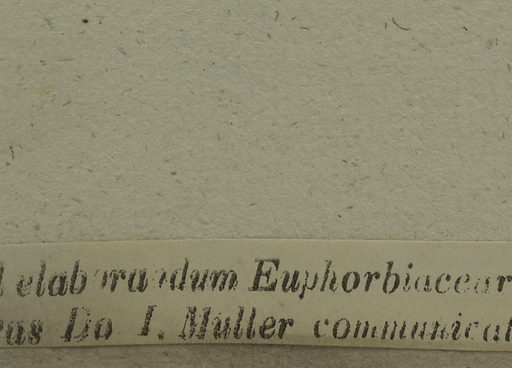 elaborandum Euphorbiacear
Do I. Muller communicat